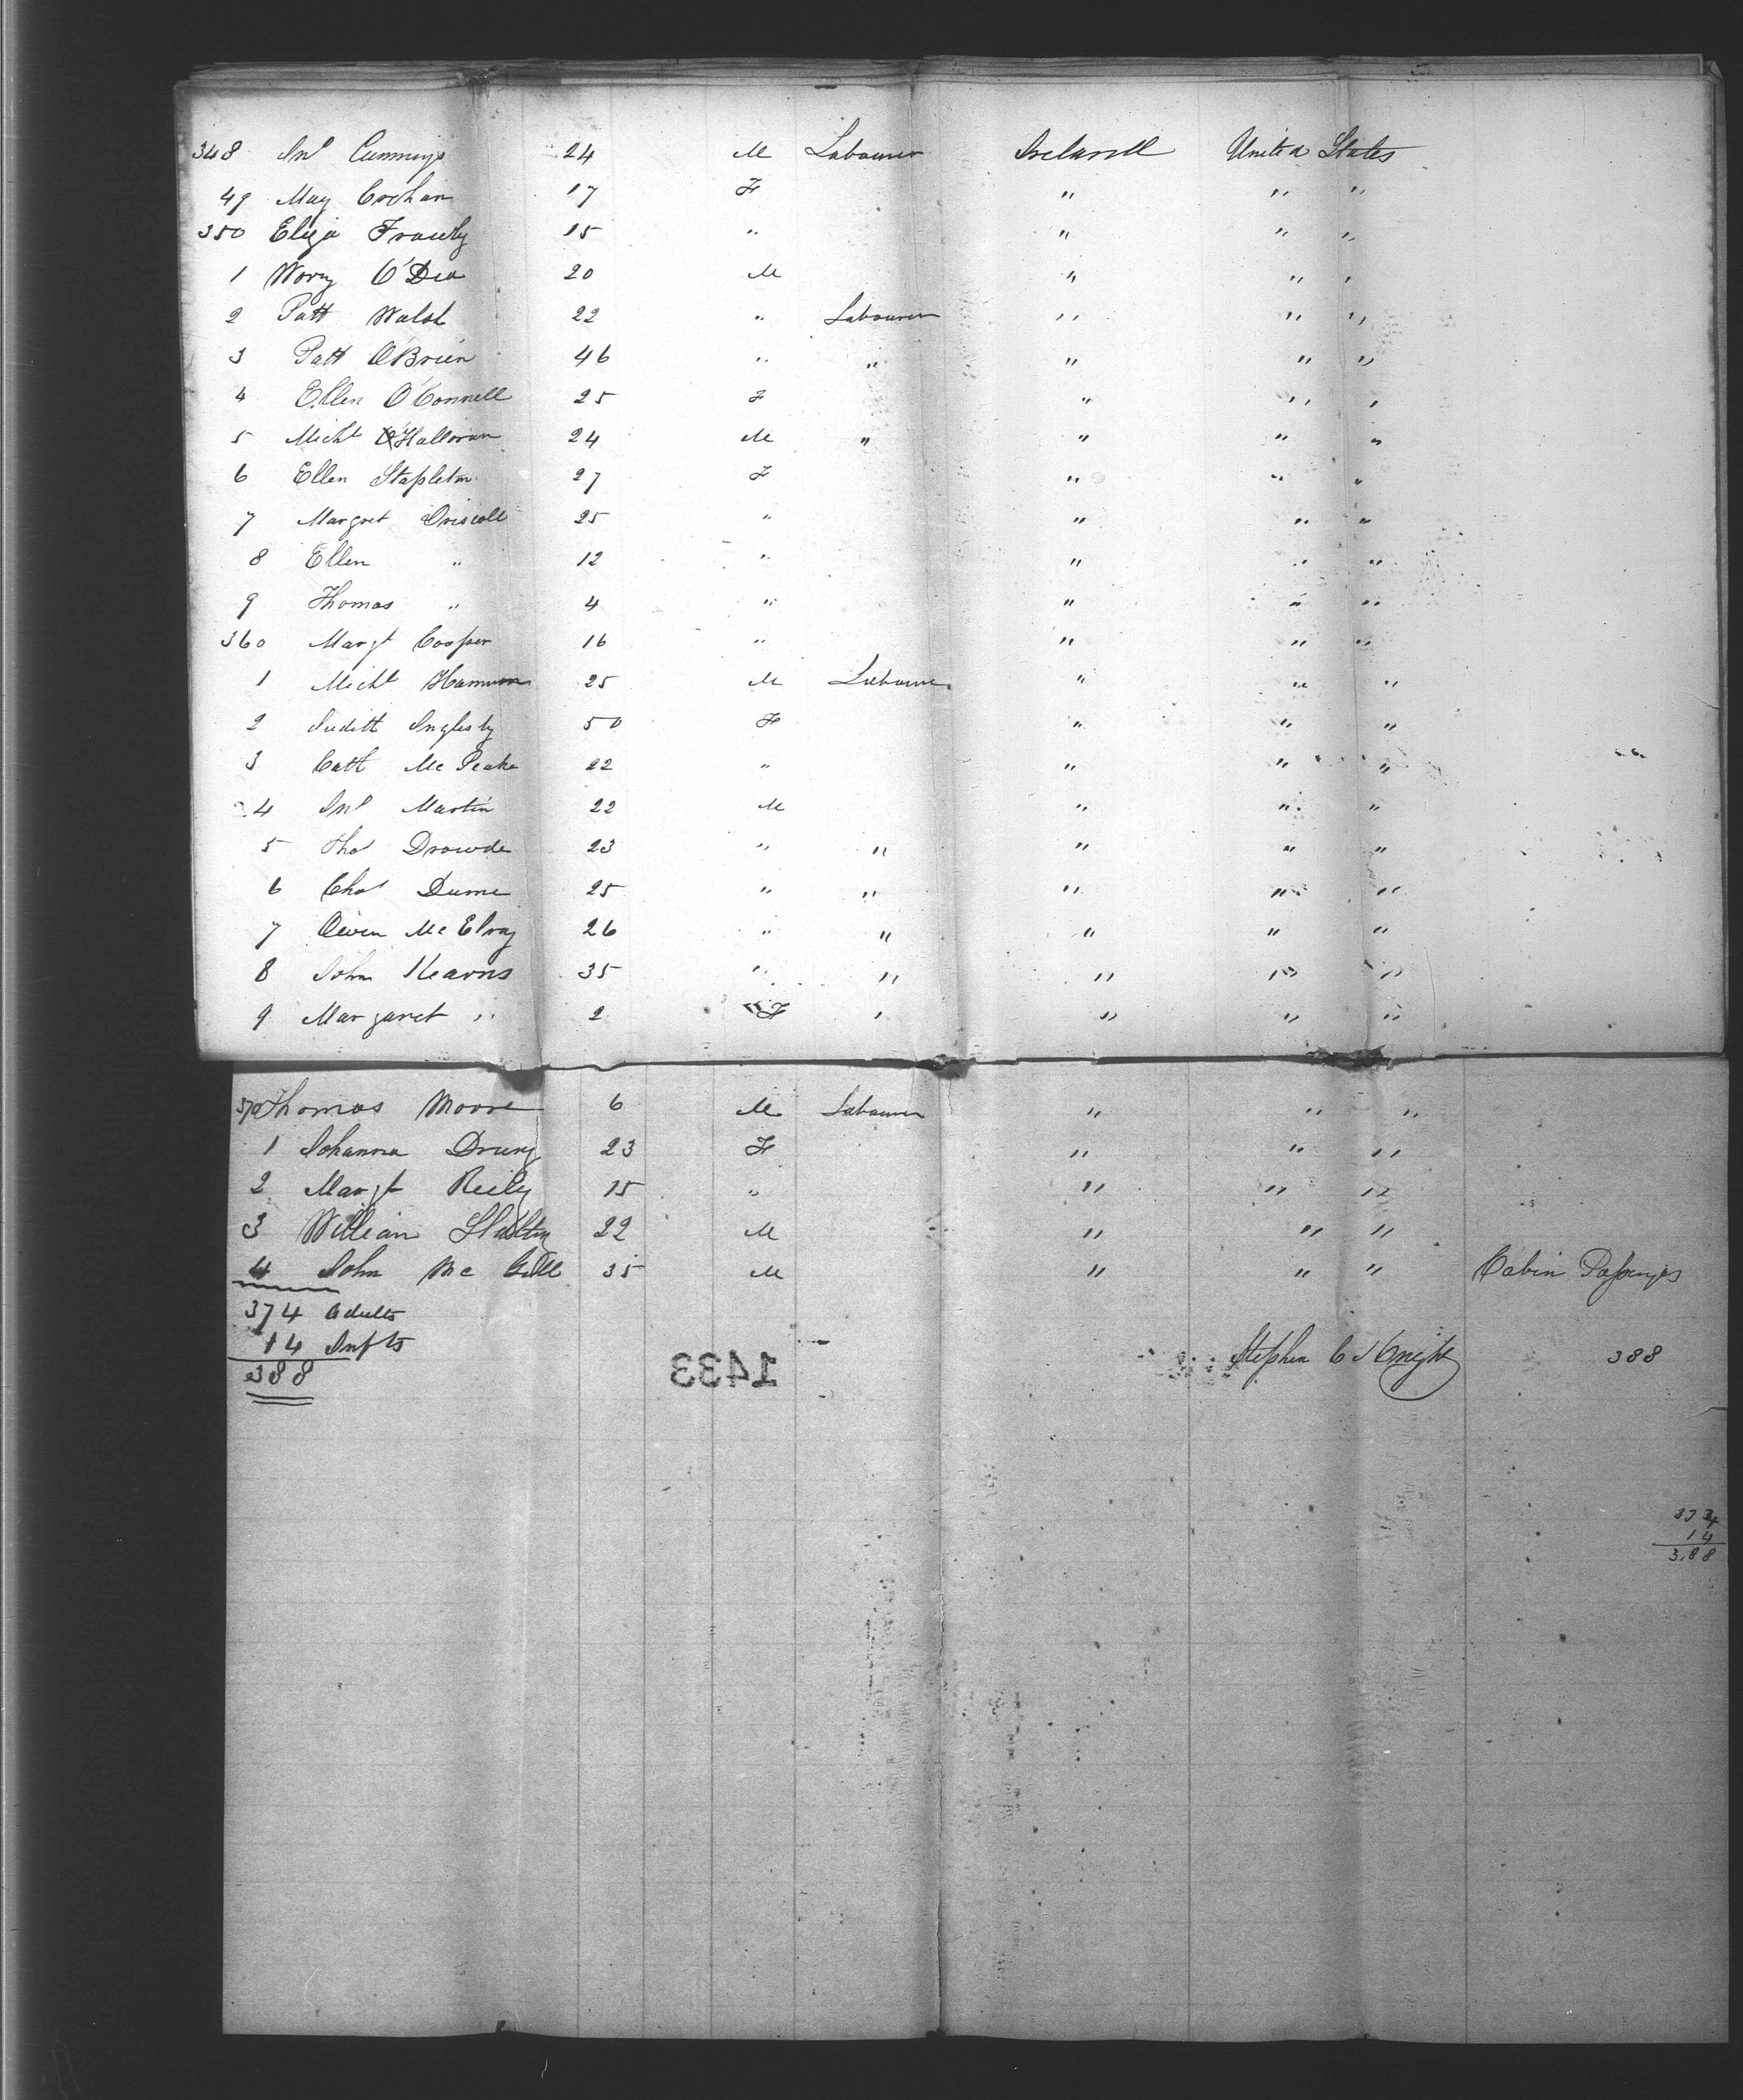 348 Jno Cummings 24 M Labourer Ireland United States
49 May Cochan 17 F " " "
350 Eliza Frawly 15 " " " "
1 Wory O'Dea 20 M " " "
2 Patt Walsh 22 " Labourer " " "
3 Patt O'Brien 46 " " " " "
4 Ellen O'Connell 25 F " " "
5 Michl O'Halloran 24 M " " " "
6 Ellen Stapleton 27 F " " "
7 Margret Driscoll 25 " " " "
8 Ellen " 12 " " " "
9 Thomas " 4 " " " "
360 Margt Cooper 16 " " " "
1 Michl Hammon 25 M Labourer " " "
2 Juditt Inglesby 50 F " " "
3 Catt Mc Peake 22 " " " "
4 Jno Martin 22 M " " "
5 Thos Drowde 23 " " " " "
6 Chas Dume 25 " " " " "
7 Owen Mc Elroy 26 " " " " "
8 John Kearns 35 " " " " "
9 Margaret " 2 F " " " "
370 Thomas Moore 6 M Labourer " " "
1 Johanna Drury 23 F " " "
2 Margt Reily 15 " " " "
3 William 22 M " " "
4 John Mc Gill 35 M " " " Cabin Passenges
374 Adults
14 Infts
388
1433
Stephen C Knight 388
374
14
388